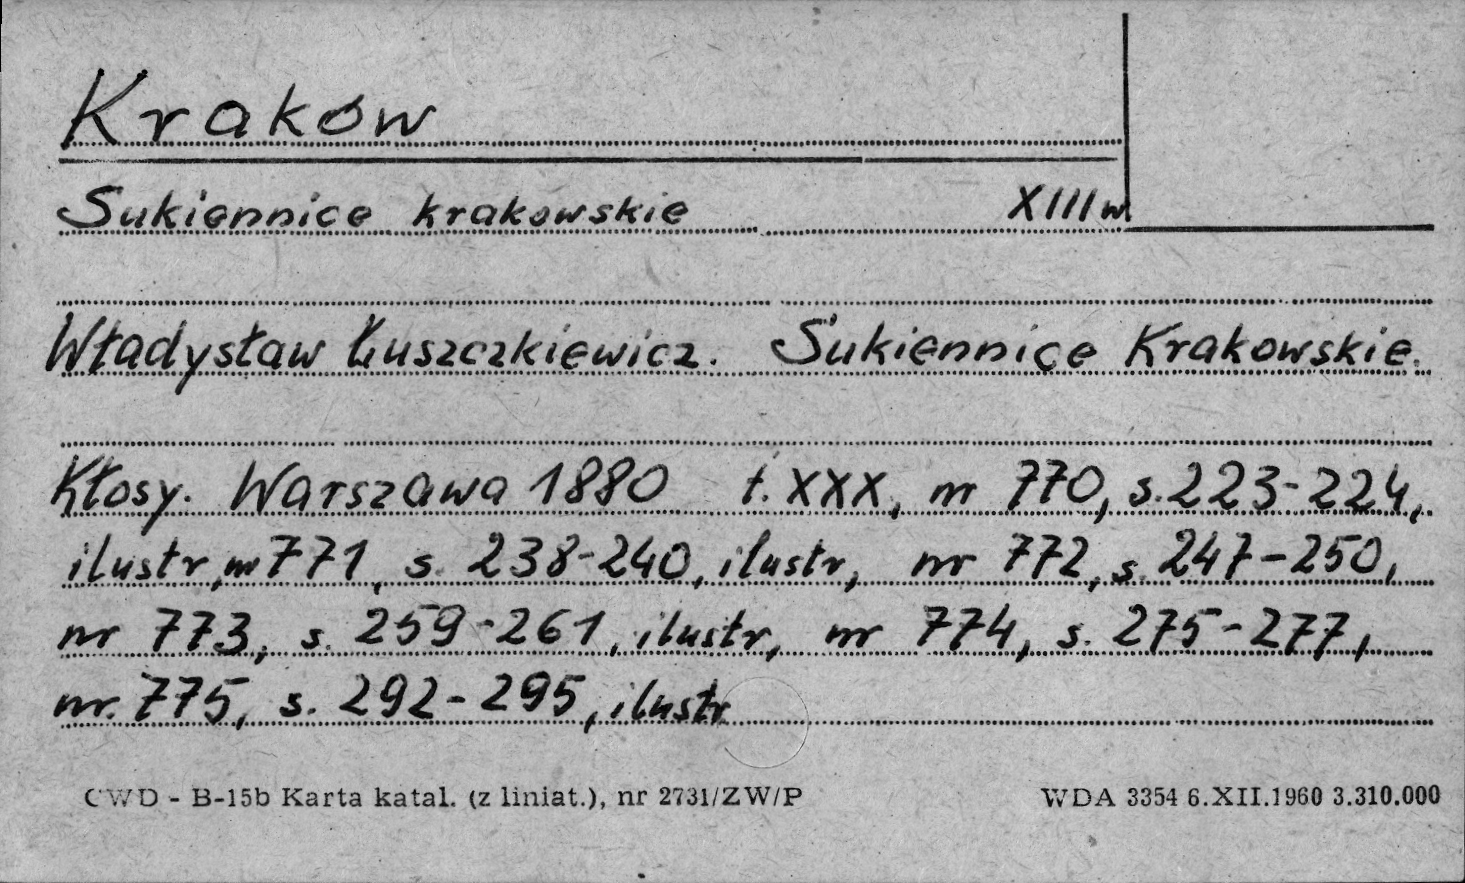 Kraków
Sukiennice krakowskie XIII w.
Władysław Łuszczkiewicz. Sukiennice Krakowskie.
Kłosy. Warszawa 1880 t. XXX, nr 770, s. 223-224,
ilustr, nr 771, s. 238-240, ilustr, nr 772, s. 247-250,
nr 773, s. 259-261, ilustr, nr 774, s. 275-277,
nr. 775, s. 292-295, ilustr
CWD - B-15b Karta katal. (z liniat.), nr 2731/ZW/P WDA 3354 6.XII.1960 3.310.000